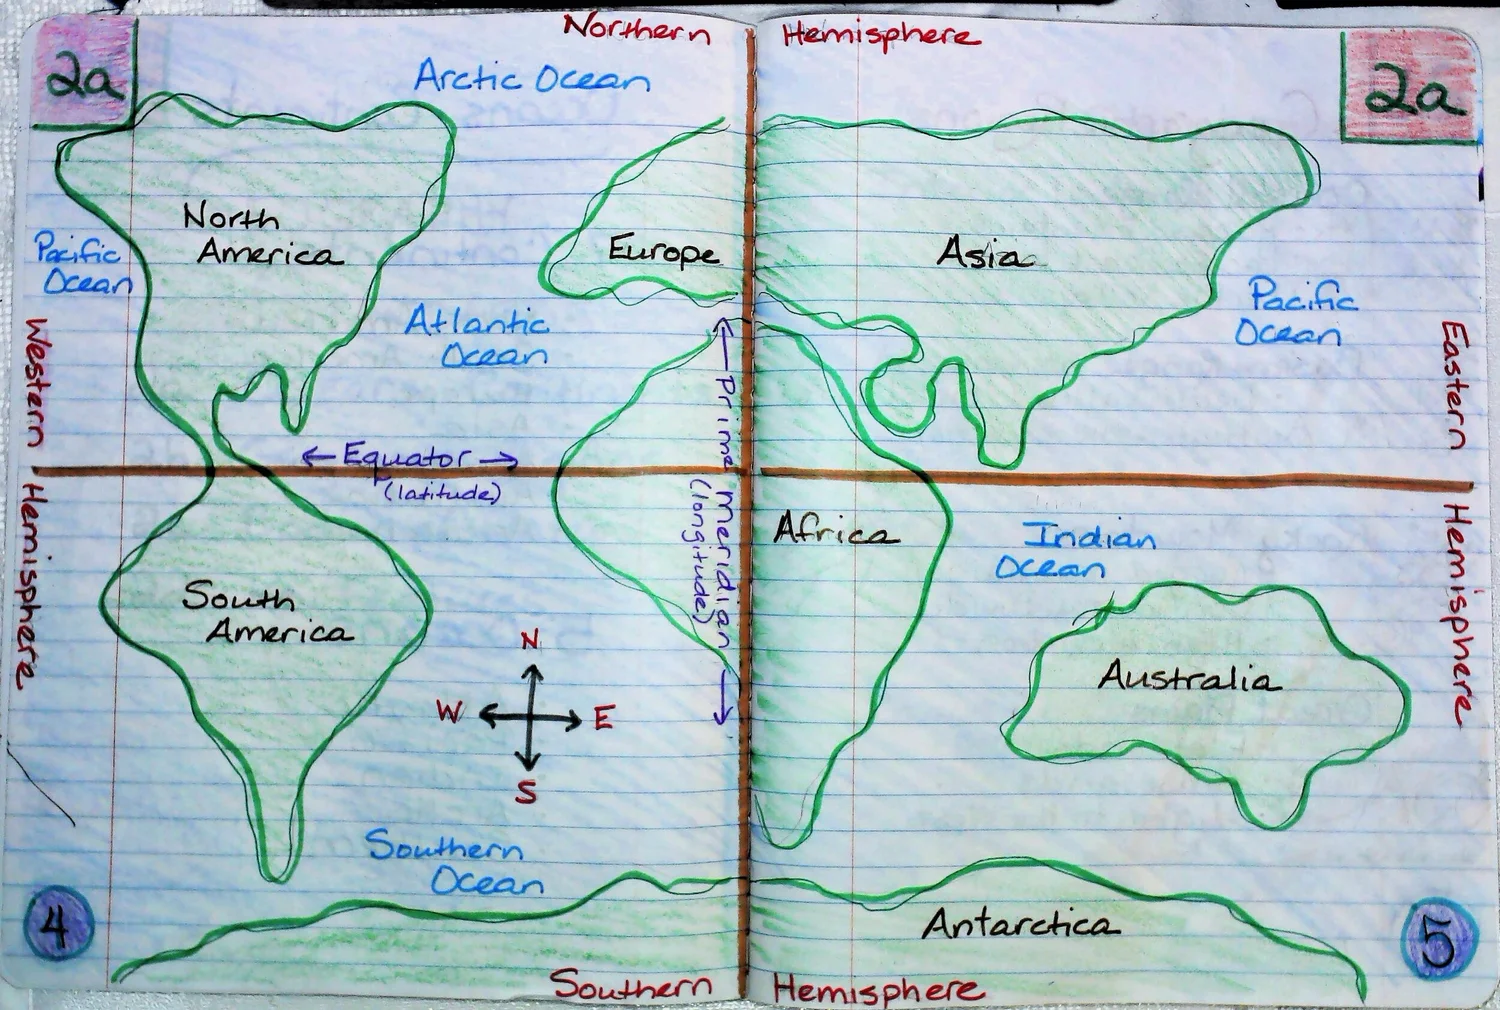 Northern Hemisphere
2a
2a
Arctic Ocean
North
America
Europe
Asia
Pacific
Ocean
Atlantic
Ocean
Pacific
Ocean
Western Hemisphere
Eastern Hemisphere
← Equator →
(latitude)
← Prime Meridian →
(longitude)
Africa
Indian
Ocean
South
America
Australia
N
W E
S
Southern
Ocean
Antarctica
4
5
Southern Hemisphere